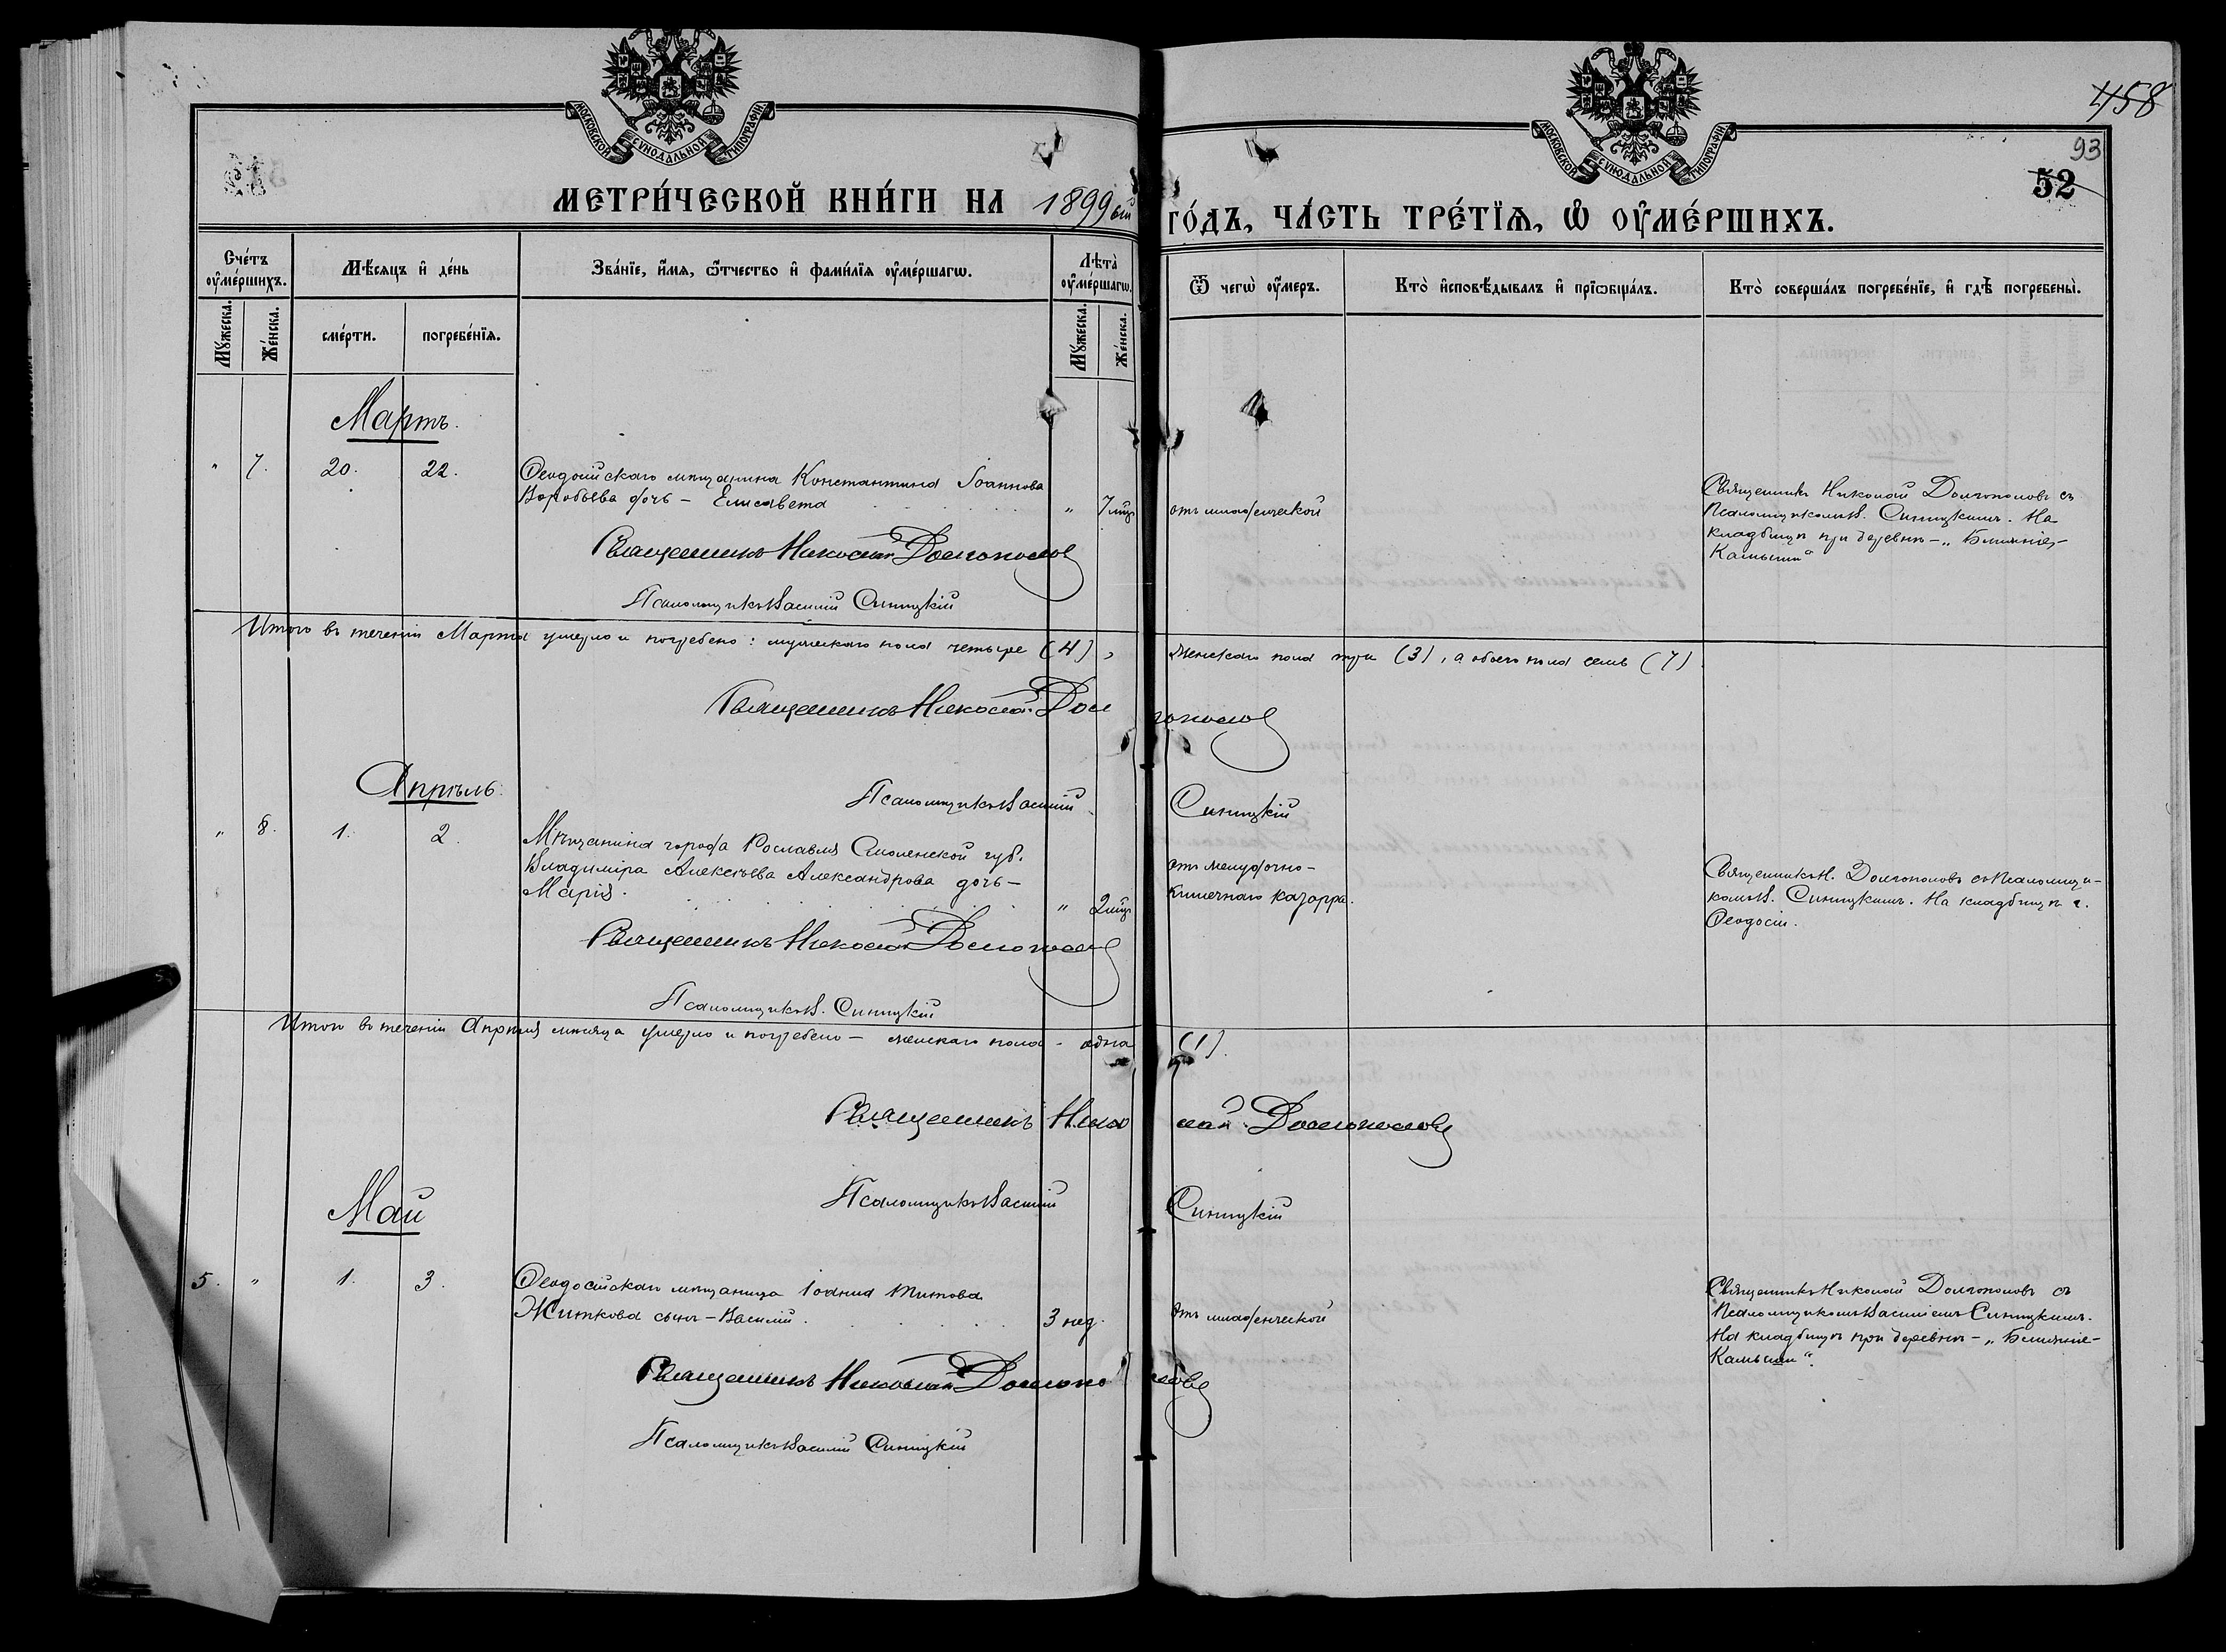 МОСКОВСКОЙ СѴНОДАЛЬНОЙ ТИПОГРАФІИ
МОСКОВСКОЙ СѴНОДАЛЬНОЙ ТИПОГРАФІИ
458
93
52
МЕТРИ́ЧЕСКОЙ КНИ́ГИ НА 1899ый ГО́ДЪ, ЧА́СТЬ ТРЕ́ТЇѦ, Ѡ҆ ОУ҆МЕ́РШИХЪ.
Сче́тъ оу҆ме́ршихъ.
Мѣ́сяцъ и҆ де́нь
Зва́нїе, и҆́мѧ, ѻ҆́тчество и҆ фами́лїѧ оу҆ме́ршагѡ.
Лѣ́та оу҆ме́ршагѡ.
Ѿ чегѡ̀ оу҆́меръ.
Кто̀ и҆сповѣ́дывалъ и҆ прїѡбща́лъ.
Кто̀ соверша́лъ погребе́нїе, и҆ гдѣ̀ погребены̀.
Мꙋ́жеска.
Же́нска.
сме́рти.
погребе́нїѧ.
Мꙋ́жеска.
Же́нска.
Мартъ.
" 7. 20. 22. Ѳеодосійскаго мѣщанина Константина Іоаннова
Воробьева дочь – Елисавета " 7 мѣс.
отъ младенческой
Священникъ Николай Долгополовъ съ
Псаломщикомъ В. Синицкимъ. На
кладбищѣ при деревнѣ – „Ближніе-
Камыши“
Священникъ Николай Долгополов
Псаломщикъ Василій Синицкій
Итого въ теченіи Марта умерло и погребено: мужескаго пола четыре (4), женскаго пола три (3), а обоего пола семь (7)
Священникъ Николай Долгополов
Псаломщикъ Василій Синицкій
Апрѣль.
" 8. 1. 2. Мѣщанина города Рославля Смоленской губ.
Владиміра Алексѣева Александрова дочь –
Марія. " 2 мѣс.
отъ желудочно-
кишечнаго катарра.
Священникъ Н. Долгополовъ съ Псаломщи-
комъ В. Синицкимъ. На кладбищѣ г.
Ѳеодосіи.
Священникъ Николай Долгополов
Псаломщикъ В. Синицкій
Итого въ теченіи Апрѣля мѣсяца умерло и погребено – женскаго пола – одна (1).
Священникъ Николай Долгополовъ
Псаломщикъ Василій Синицкій
Май
5. " 1. 3. Ѳеодосійскаго мѣщанина Іоанна Титова
Житкова сынъ – Василій. 3 нед.
отъ младенческой
Священникъ Николай Долгополовъ съ
Псаломщикомъ Василіемъ Синицкимъ.
На кладбищѣ при деревнѣ – „Ближніе-
Камыши“.
Священникъ Николай Долгополовъ
Псаломщикъ Василій Синицкій